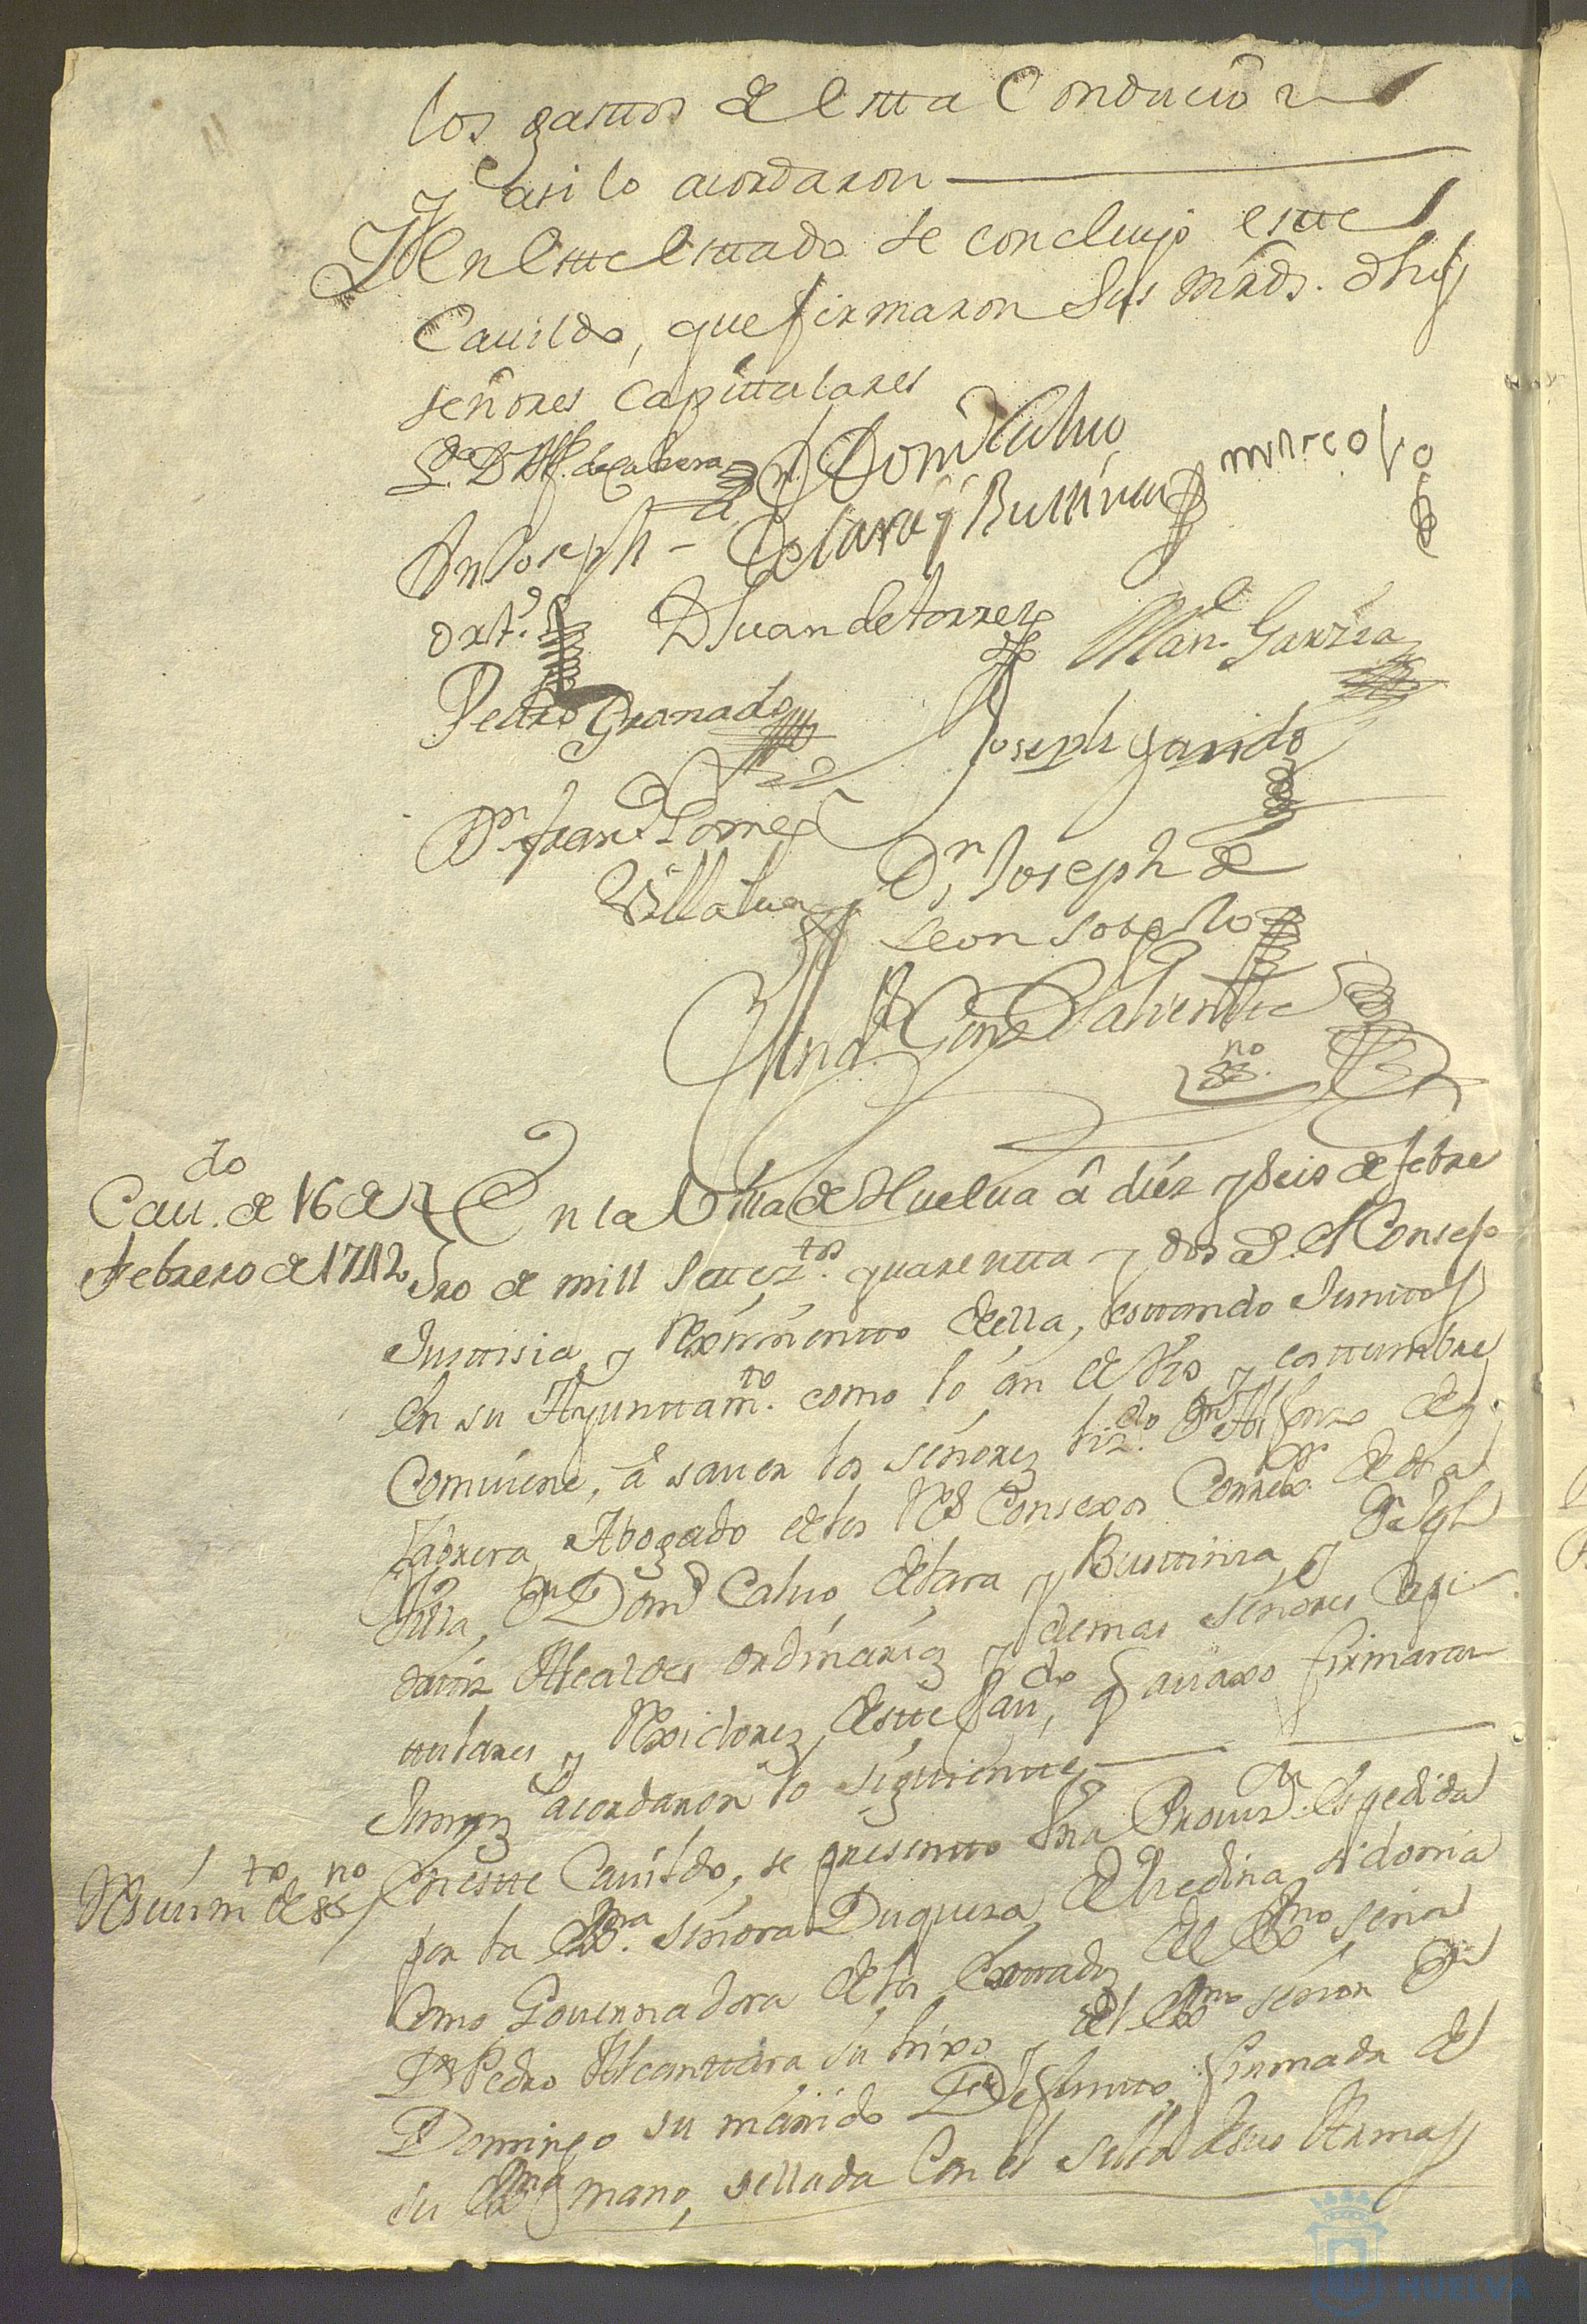 los gasttos de estta Conducion
Y asi lo acordaron
Y En estte esttado se concluyo estte
Cauildo, que firmaron Sus mrds. dhos
señores capittulares
Ldo. D. Alf. de Cabrera
Dn. Domo. Calvo
de lara y Buttinza
marcos
Dn Joseph
ortz.
D Juan de torres
Manl. Garzia
Pedro Granado
Joseph garrido
Dn. Franco. Gomez
Villalua
Dn. Joseph de
leon sotelo
Gonz Valiente
sno.
Caudo. de 16 de
Febrero de 1742
En la Villa de Huelua â diéz y seis de febre
ro de mill setteztos. quarentta y dos as. el Consejo
Justtisia, y Reximientto della, esttando Junttos
en su Ayunttamto. como lo ân de Vso y costtumbre
Comuiene, â sauer los señores lizdo. Dn Alfonso de
Cabrera Abogado de los Rs Consexos Correxr. de dha
Villa, Dn Domo. Calvo de lara y Busttinza, y Dn Jph
ordinarios y demas señores Capi
ttulares y Rexidores deste Caudo, q auaxo firmaran
Junttos acordaron lo siguientte
Resiuimto. de sno
En estte Cauildo, se presentto Vna Prouin. Espedida
por la Exma. señora Duquesa de Medina sidonia
Como Gouernadora de los Esttados del Exmo señor
Dn Pedro Alcanttara su hixo, y del Exmo señor Dn
Domingo su marido Defuntto, firmada de
su Exma mano, sellada Con el sello de sus Armas
HUELVA